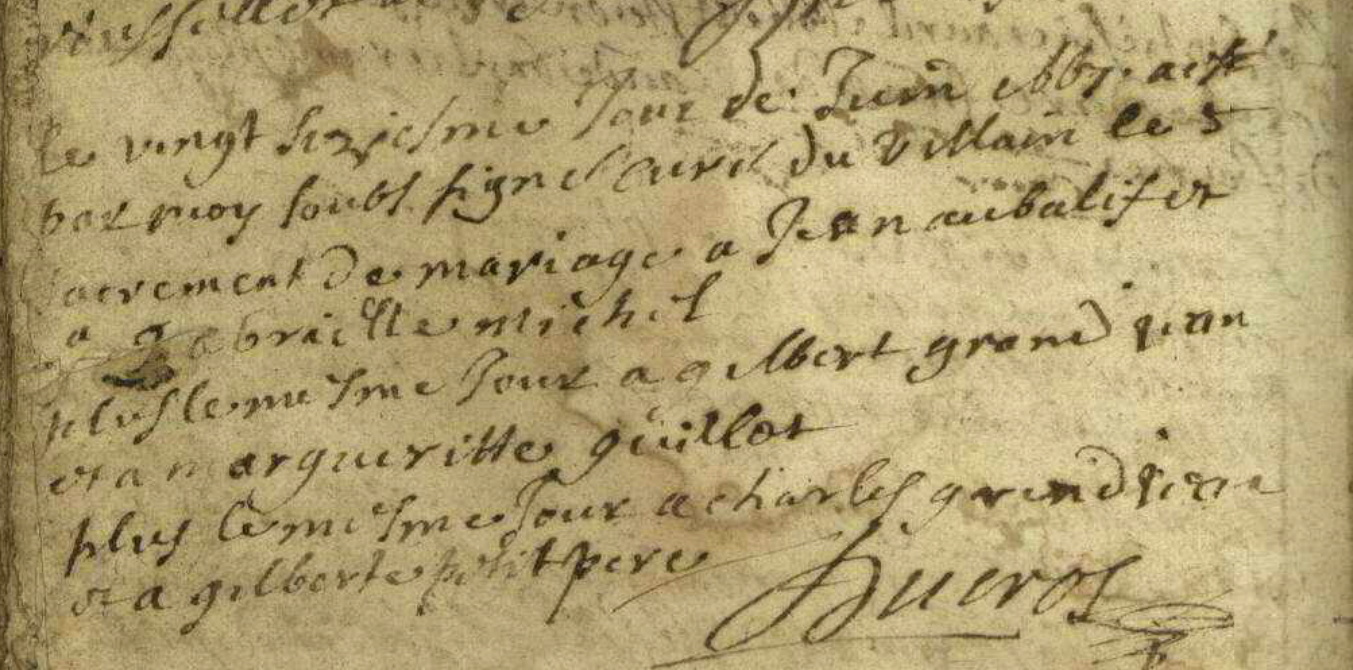 le vingt seziesme Jour de Juin
par moy soubs signe Curé du Villain le S
acrement de mariage a Jean aubalif et
a gabrielle michel
plus le mesme Jour a gilbert grand jean
et a margueritte guillot
plus le mesme Jour a charles grand jean
et a gilberte petit pere